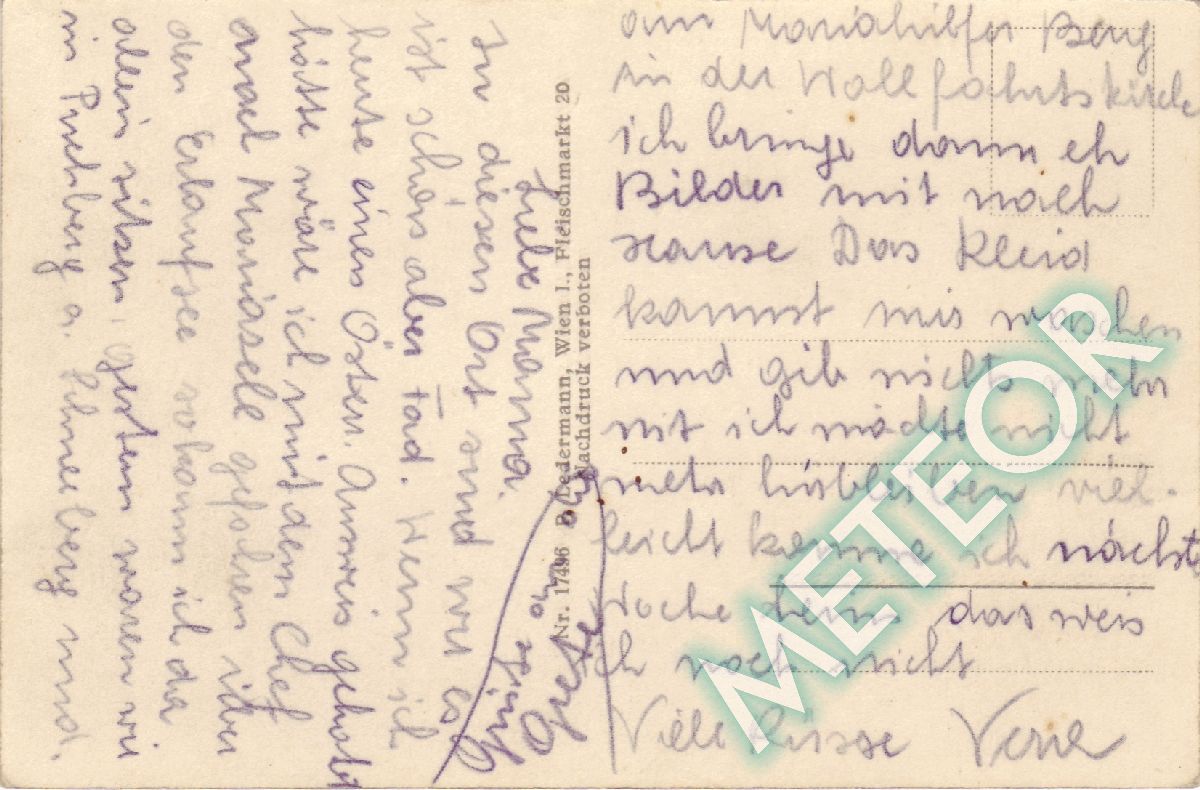 Liebe Mamma.
In diesen Ort sind wir es
ist schön aber fad. Wenn ich
heute einen Österr. Ausweis gehabt
hätte wäre ich mit dem Chef
nach Mariazell gefahren über
den Erlaufsee so kann ich da
allein sitzen, gestern waren wir
in Puchberg a. Schneeberg und
am Mariahilfer Berg
in der Wallfahrtskirche
ich bringe dann eh
Bilder mit nach
Hause Das Kleid
kannst mir waschen
und gib nichts mehr
mit ich möchte nicht
mehr hierbleiben viel-
leicht komme ich nächste
Woche heim das weis
ich noch nicht
Viele Küsse Vera
Grete
Nr. 17496 P. Ledermann, Wien I., Fleischmarkt 20
Nachdruck verboten
METEOR